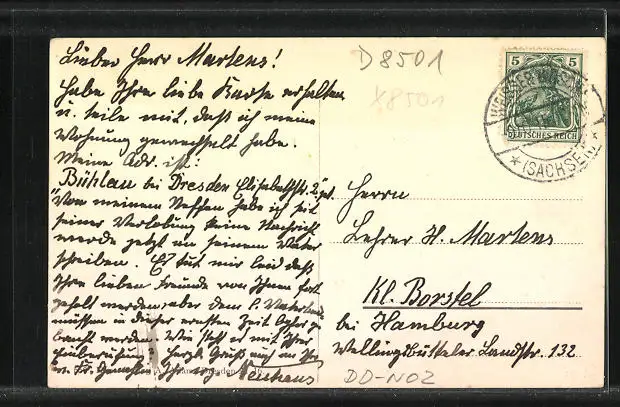 Lieber Herr Martens!
Habe Ihre liebe Karte erhalten
u. teile mit, daß ich meine
Wohnung gewechselt habe.
Meine Adr. ist:
Bühlau bei Dresden Elisabethstr. 2
Von meinem Neffen habe ich seit
seiner Verlobung keine Nachricht
werde jetzt an seinen Vater
schreiben. Es tut mir leid daß
Ihre lieben Freunde von Ihnen fort
geholt werden, aber dem l. Vaterland
müssen in dieser ernsten Zeit Opfer ge
bracht werden. Wie steht es mit Ihrer
Herzl. Gruß auch an Ihre
Neuhaus
D 8501
X8501
5 5
DEUTSCHES REICH
(SACHSEN)
Herrn
Lehrer H. Martens
Kl. Borstel
bei Hamburg
Wellingsbütteler Landstr. 132
DD-NOZ